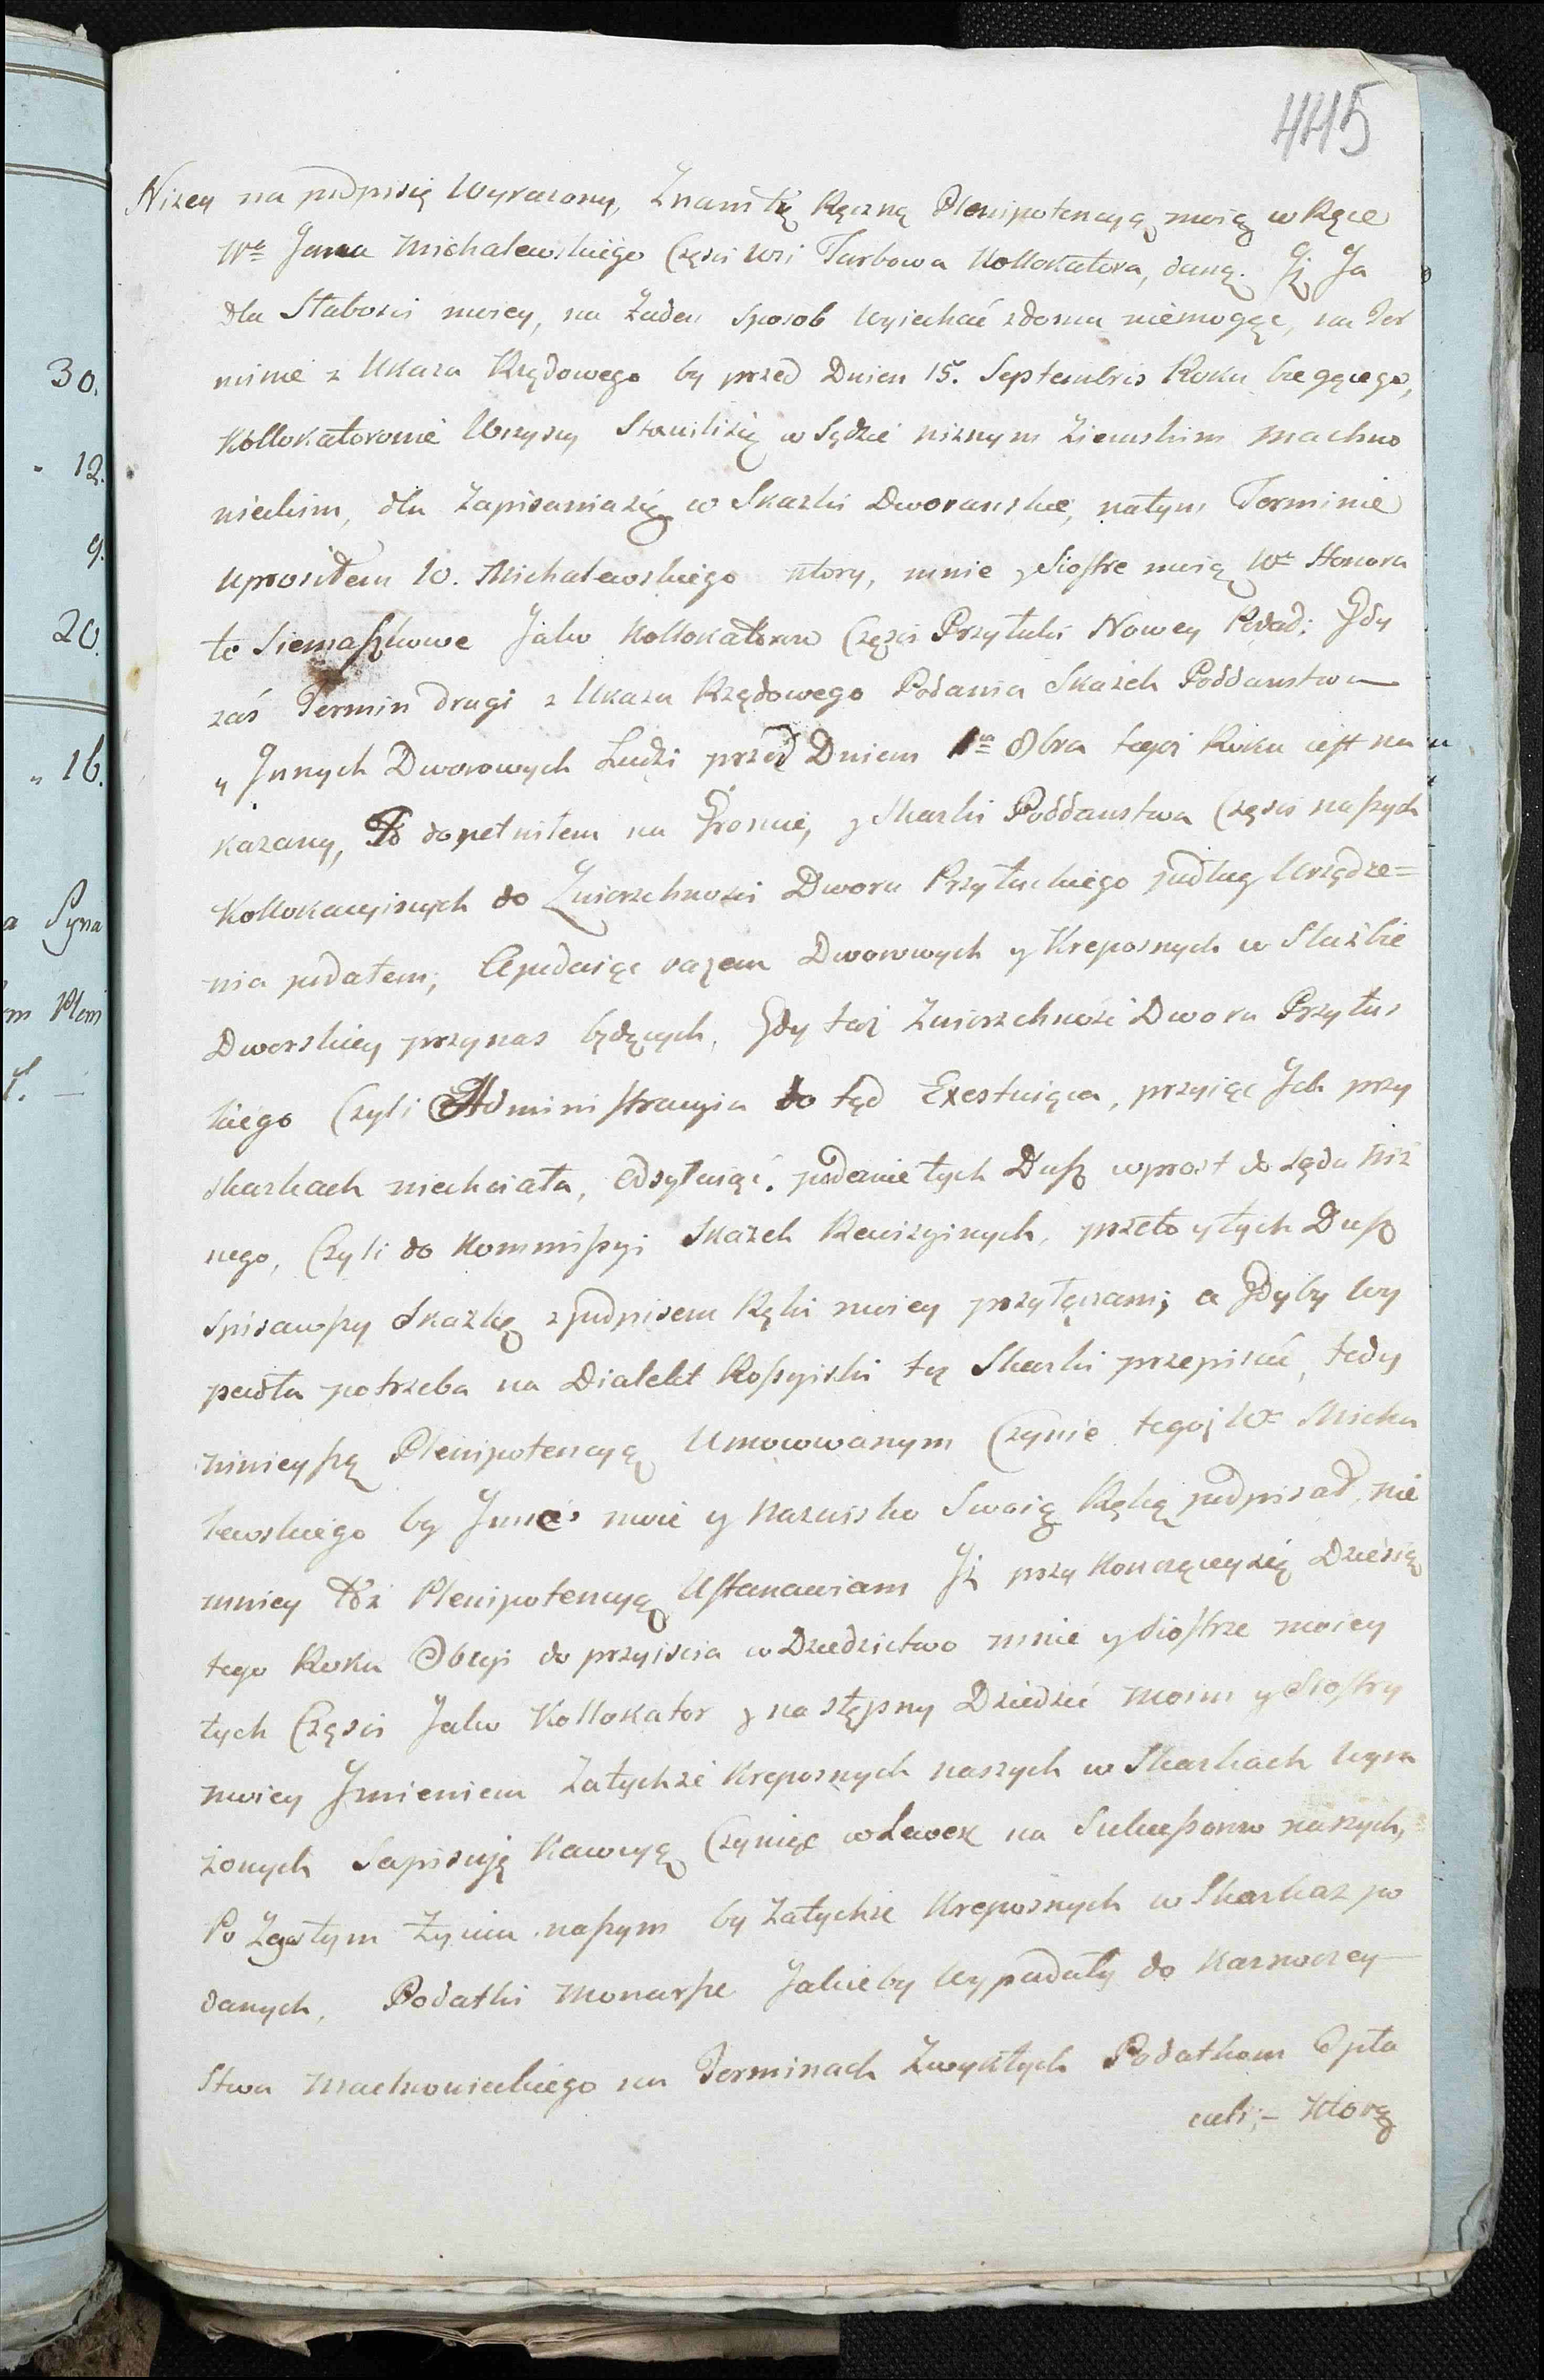 445
Niżey na podpisie Wyrażony, Znam tę Ręczną Plenipotencyą moią w Ręce
Wo Jana Michalewskiego Części Wsi Turbowa Kollokatora, daną. Jż Ja
dla Słabości moiey, na Żaden Sposob Wyiechać zdomu niemogąc, na Ter
minie z Ukazu Rządowego by przed Dniem 15. Septembris Roku bieżącego,
Kollokatorowie Wszyscy Stawilisię w Sądzie niznym Ziemskim Machno
wieckim, dla Zapisaniasię w Skazki Dworanskie, natym Terminie
Uprosiłem W. Michalewskiego ktory, mnie y Siostre moią We Honora
te Siemaszkowe Jako Kollokatorow Części Przyłuki Nowey Podad: Gdy
zaś Termin drugi z Ukazu Rządowego Podania Skazek Poddanstwa
y Jnnych Dworowych Ludzi przed Dniem 1a 8bra tegoż Roku iest na
kazany, To dopełniłem na Gronie, y Skazki Poddanstwa Części naszych
Kollokacyinych do Zwierzchności Dworu Przyłuckiego podług Urządze=
nia podałem; Apodaiąc razem Dworowych y Kreposnych w Służbie
Dworskiey przynas będących, Gdy taż Zwierzchność Dworu Przyłuc
kiego Czyli Administracyia do tąd Exestuiąca, przyiąć Jch przy
skazkach niechciała, Odsyłaiąć. podanie tych Dusz wprost do Sądu Niż
nego, Czyli do Kommissyi Skazek Rewizyinych, przeto y tych Dusz
Spisawszy Skazkę z podpisem Ręki moiey przyłączam; a Gdyby Wy
padła potrzeba na Dialekt Rossyiski tę Skazki przepisać, tedy
ninieyszą Plenipotencyą Umocowanym Czynie tegoż Wo Micha
lewskiego by Jmie moie y Nazwisko Swoią Ręką podpisał, nie
mniey Toż Plenipotencyą Ustanawiam Jż przy Konczącysię Dziesią
tego Roku do przyiscia w Dziedzictwo mnie y Siostrze moiey
tych Części Jako Kollokator y następny Dziedzić moim y Siostry
moiey Jmieniem Zatychże Kreposnych naszych w Skazkach Wyra
żonych Sapisuję Kawcyą Czyniąc wLewek na Sukcessorow naszych,
Po Zgasłym Życiu naszym by Zatychże Kreposnych w Skazkaz po
danych, Podatki Monarsze Jakieby Wypadały do Kaznaczey
stwa Machnowieckiego na Terminach Zwykłych Podatkom Opła
cali;– Ktorą
30.
12.
9.
20.
„ 16.
a Syna
m Plem